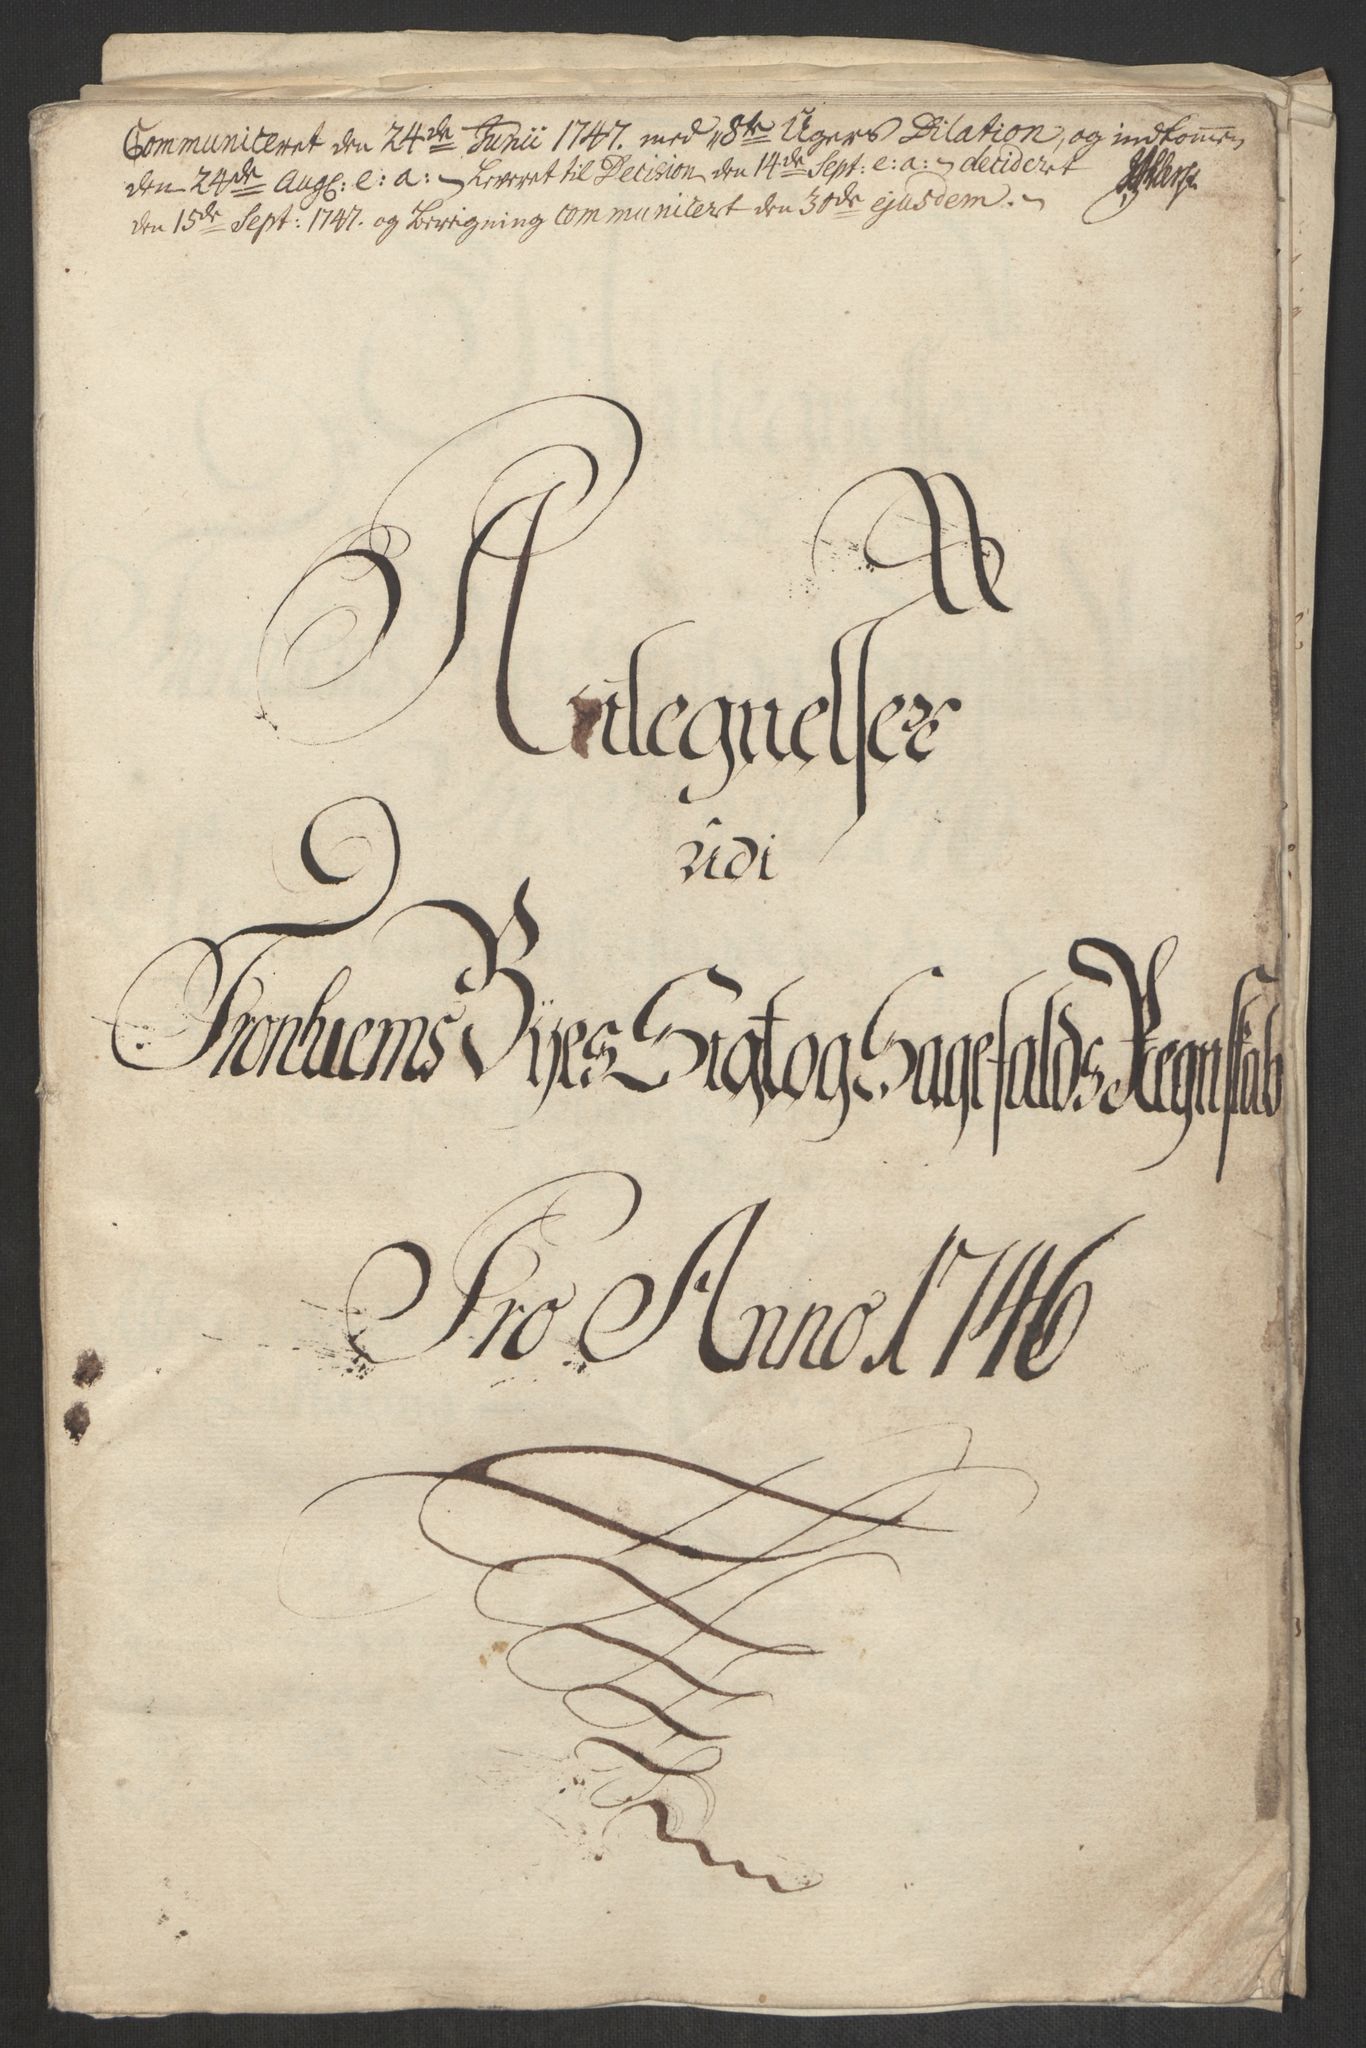 Communiceret den 24de Junii 1747. med 8te Ugers Dilation, og indkommen
den 24de Augs: e: a: Leveret til Decision den 14de Sept: e: a: decideret
den 15de Sept: 1747. og Beregning communicert den 30de ejusdem.
Antegnelser
udi
Tronhiems Byes Sigt og Sagefalds Regnskab
Pro Anno 1746